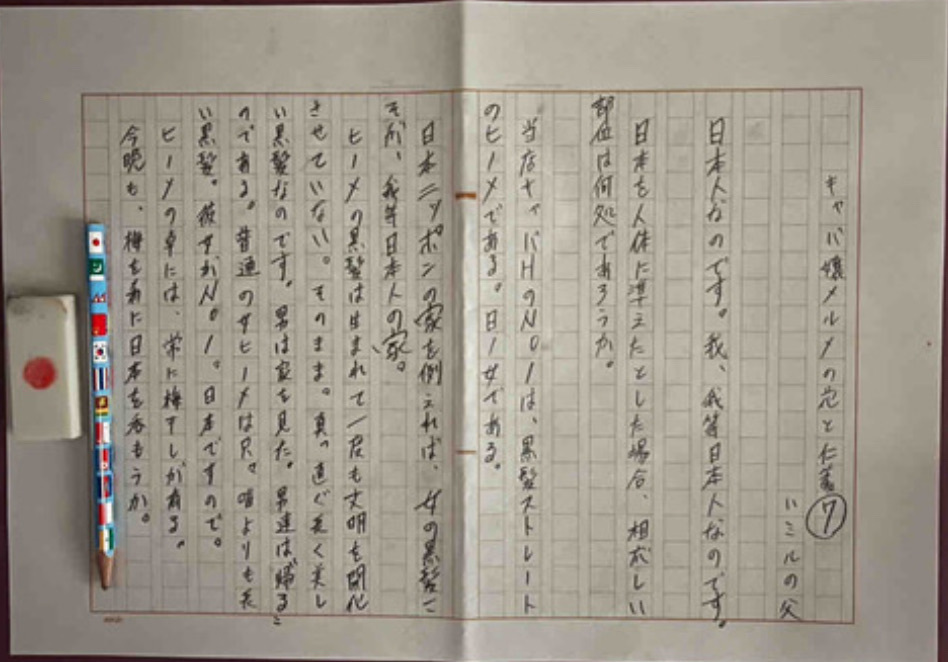 キャバ嬢メルメの恋と仁義⑦
いミルの父
日本人なのです。我、我等日本人なのです。
日本を人体に準えたとした場合、相応しい
部位は何処であろうか。
当店キャバHのNO.1は、黒髪ストレート
のヒーメである。日ー女である。
日本ニッポンの家を例えれば、女の黒髪こ
そが、我等日本人の家。
ヒーメの黒髪は生まれて一度も文明を開化
させていない。そのまま。真っ直ぐ長く美し
い黒髪なのです。男は家を見た。男達は帰る
のである。普通のサヒーメは尺。喧よりも長
い黒髪。彼女がNO.1。日本ですので。
ヒーメの卓には、常に梅干しが有る。
今晩も、梅を肴に日本を呑もうか。